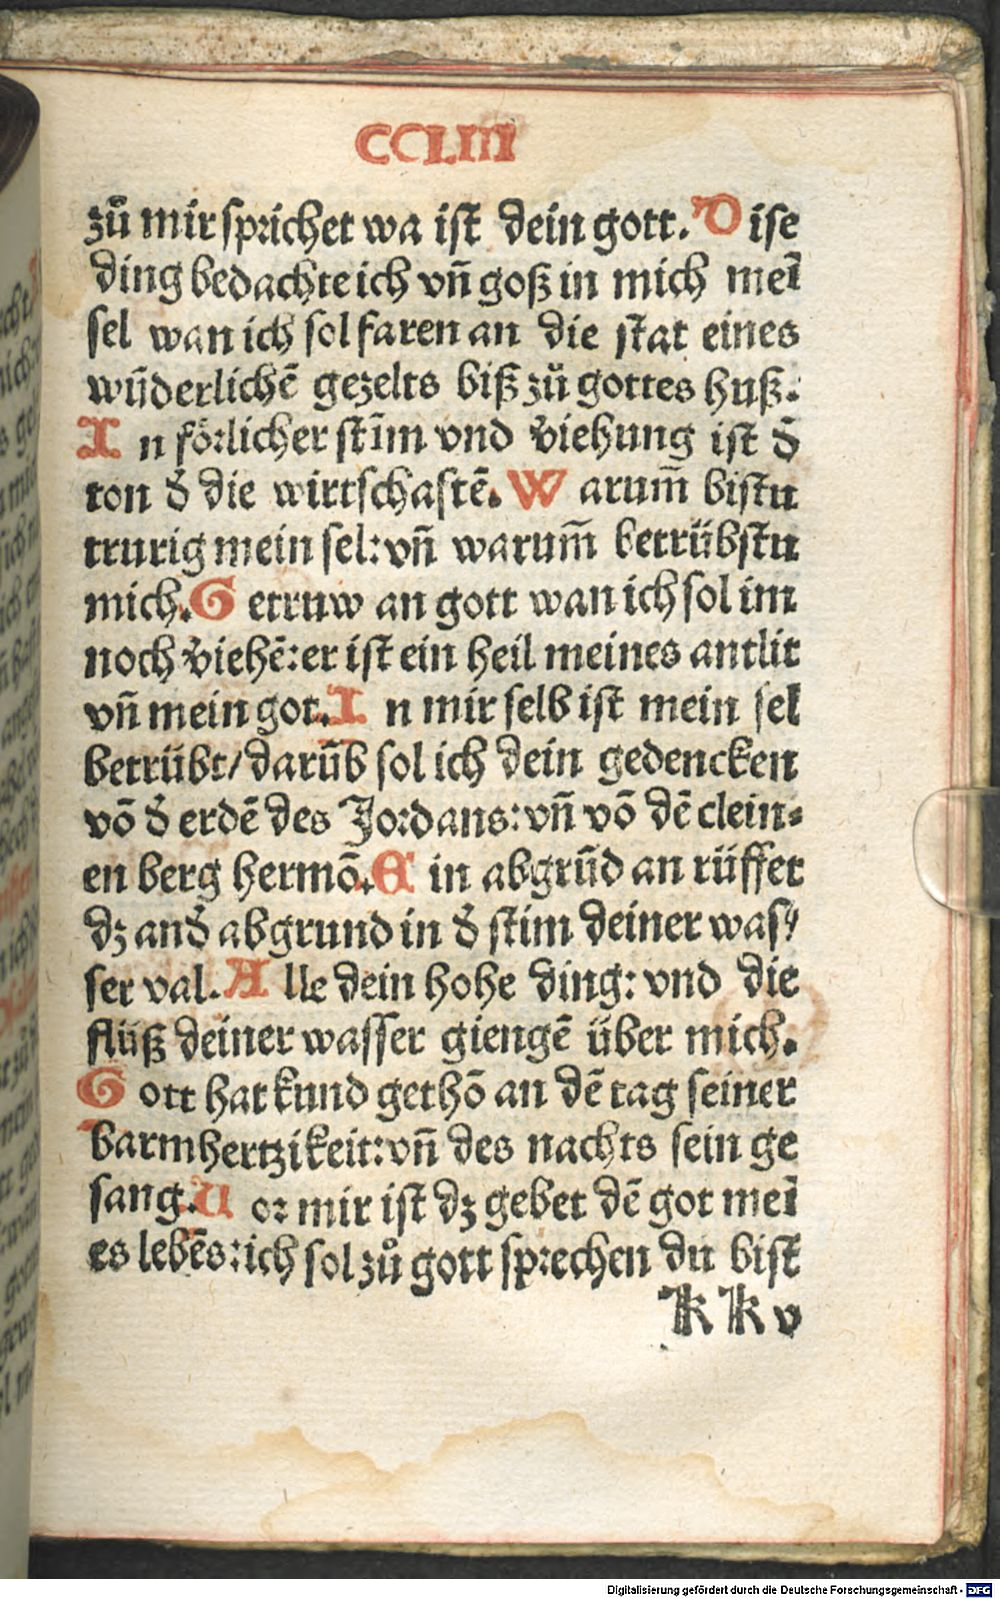 CCLIII
zů mir sprichet wa ist dein gott. Dise
ding bedachte ich vñ goß in mich meī
sel wan ich sol faren an die stat eines
wūderlichē gezelts biß zů gottes huß.
In förlicher stīm vnd v̄iehung ist d̄
ton d̄ die wirtschaftē. Warum̄ bistu
trurig mein sel: vñ warum̄ betrübstu
mich. Getruw an gott wan ich sol im
noch v̄iehē: er ist ein heil meines antlit
vñ mein got. In mir selb ist mein sel
betrübt/ darūb sol ich dein gedencken
vō d̄ erdē des Jordans: vñ vō dē clein⸗
en berg hermō. Ein abgrūd an rüffet
dz and̄ abgrund in d̄ stim deiner was⸗
ser val. Alle dein hohe ding: vnd die
flüß deiner wasser giengē über mich.
Gott hat kund gethō an dē tag seiner
barmhertzikeit: vñ des nachts sein ge
sang. Uor mir ist dz gebet dē got meī
es lebēs: ich sol zů gott sprechen du bist
kk v
Digitalisierung gefördert durch die Deutsche Forschungsgemeinschaft - DFG